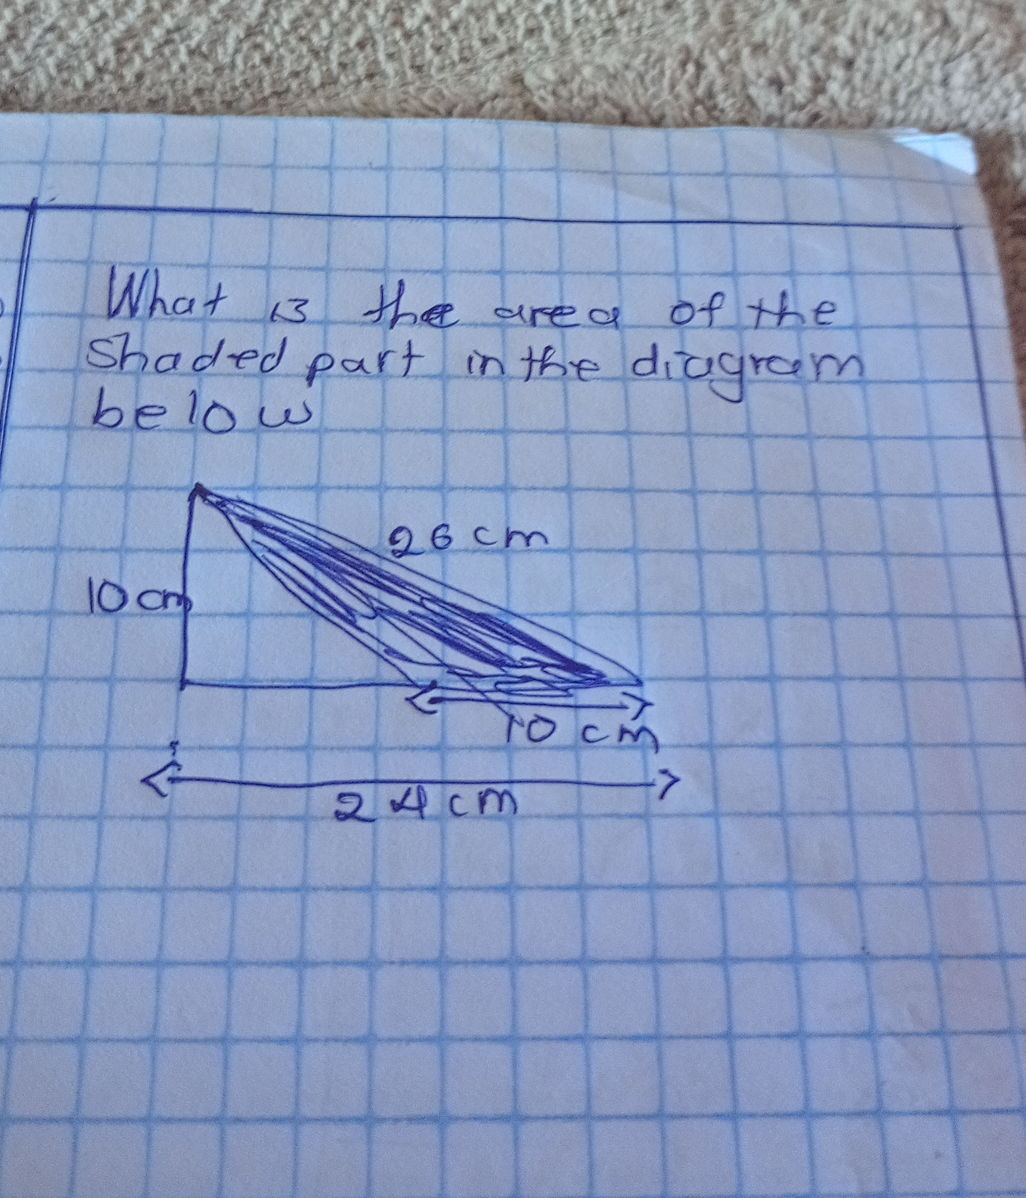 What is the area of the
shaded part in the diagram
below
26 cm
10 cm
10 cm
24 cm